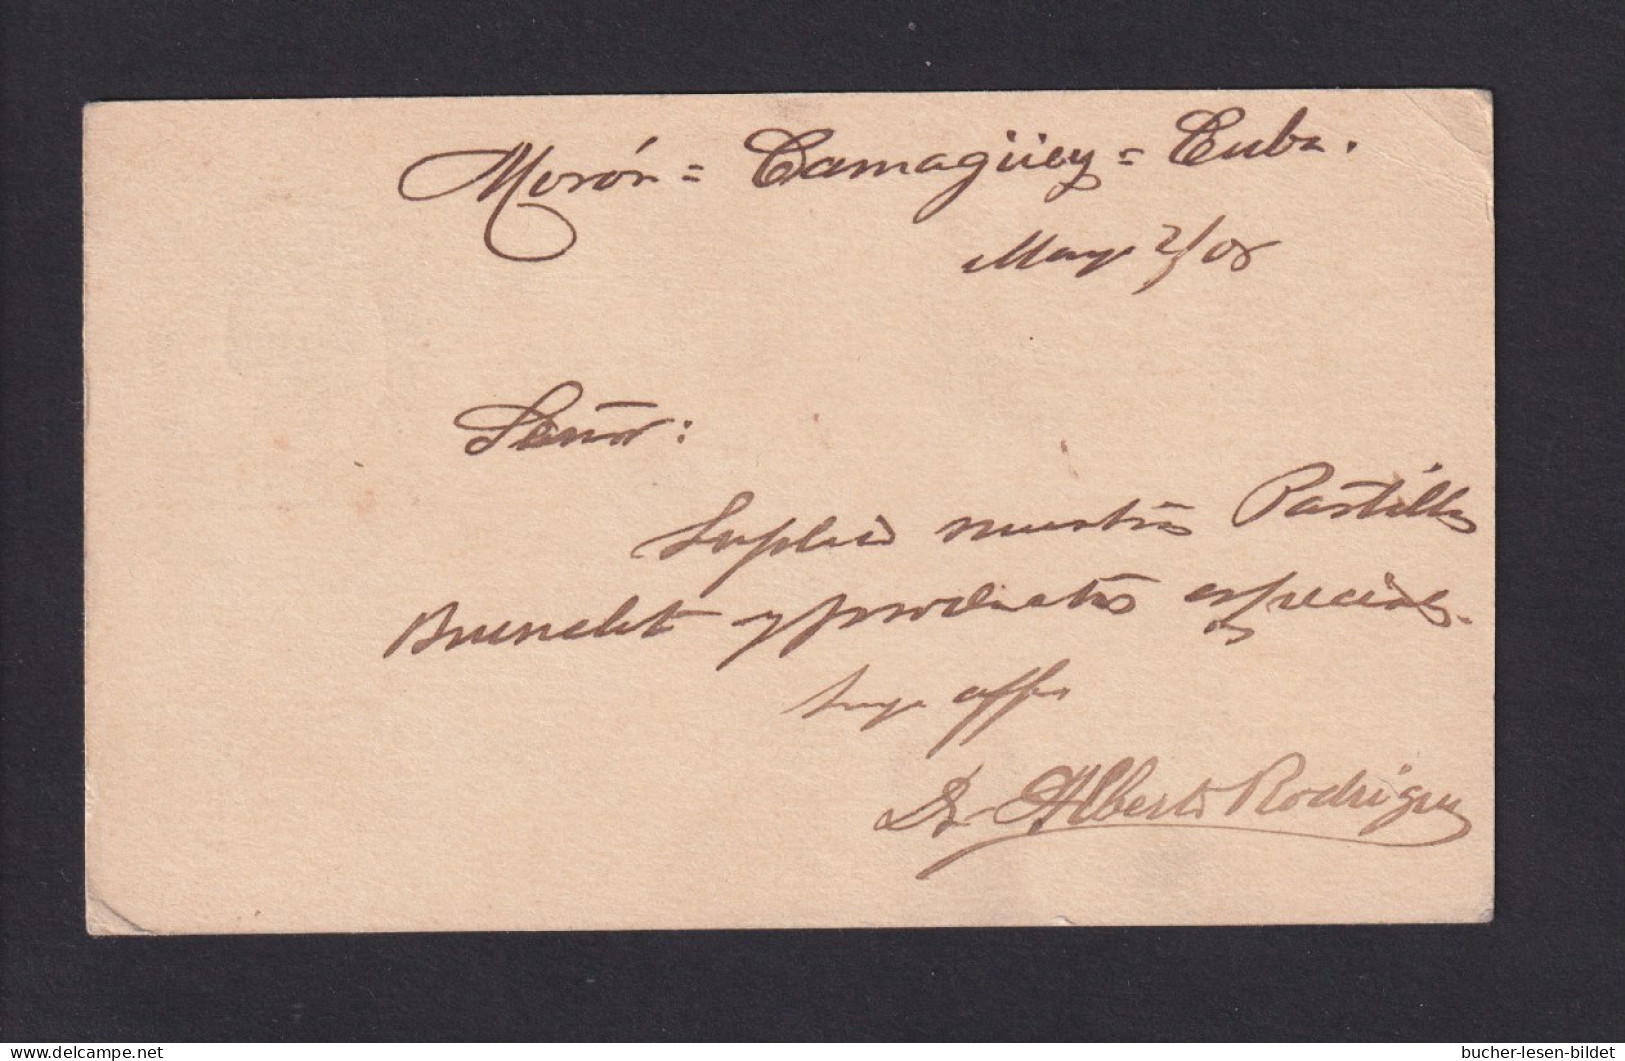 Morón = Camagüey = Cuba.
May 2/08
Señor:
Suplico muestras Pastillas
y productos especiales.
affo
Dr Alberto Rodriguez
bucher-lesen-bildet
www.delcampe.net